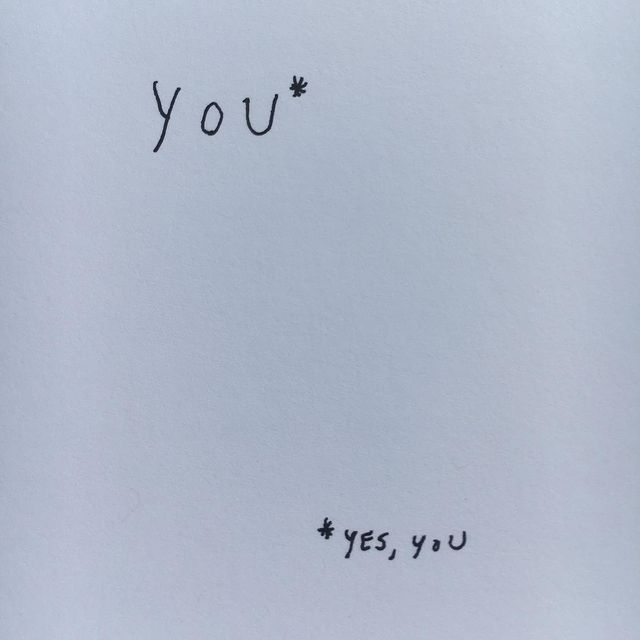 YOU*
*YES, YOU